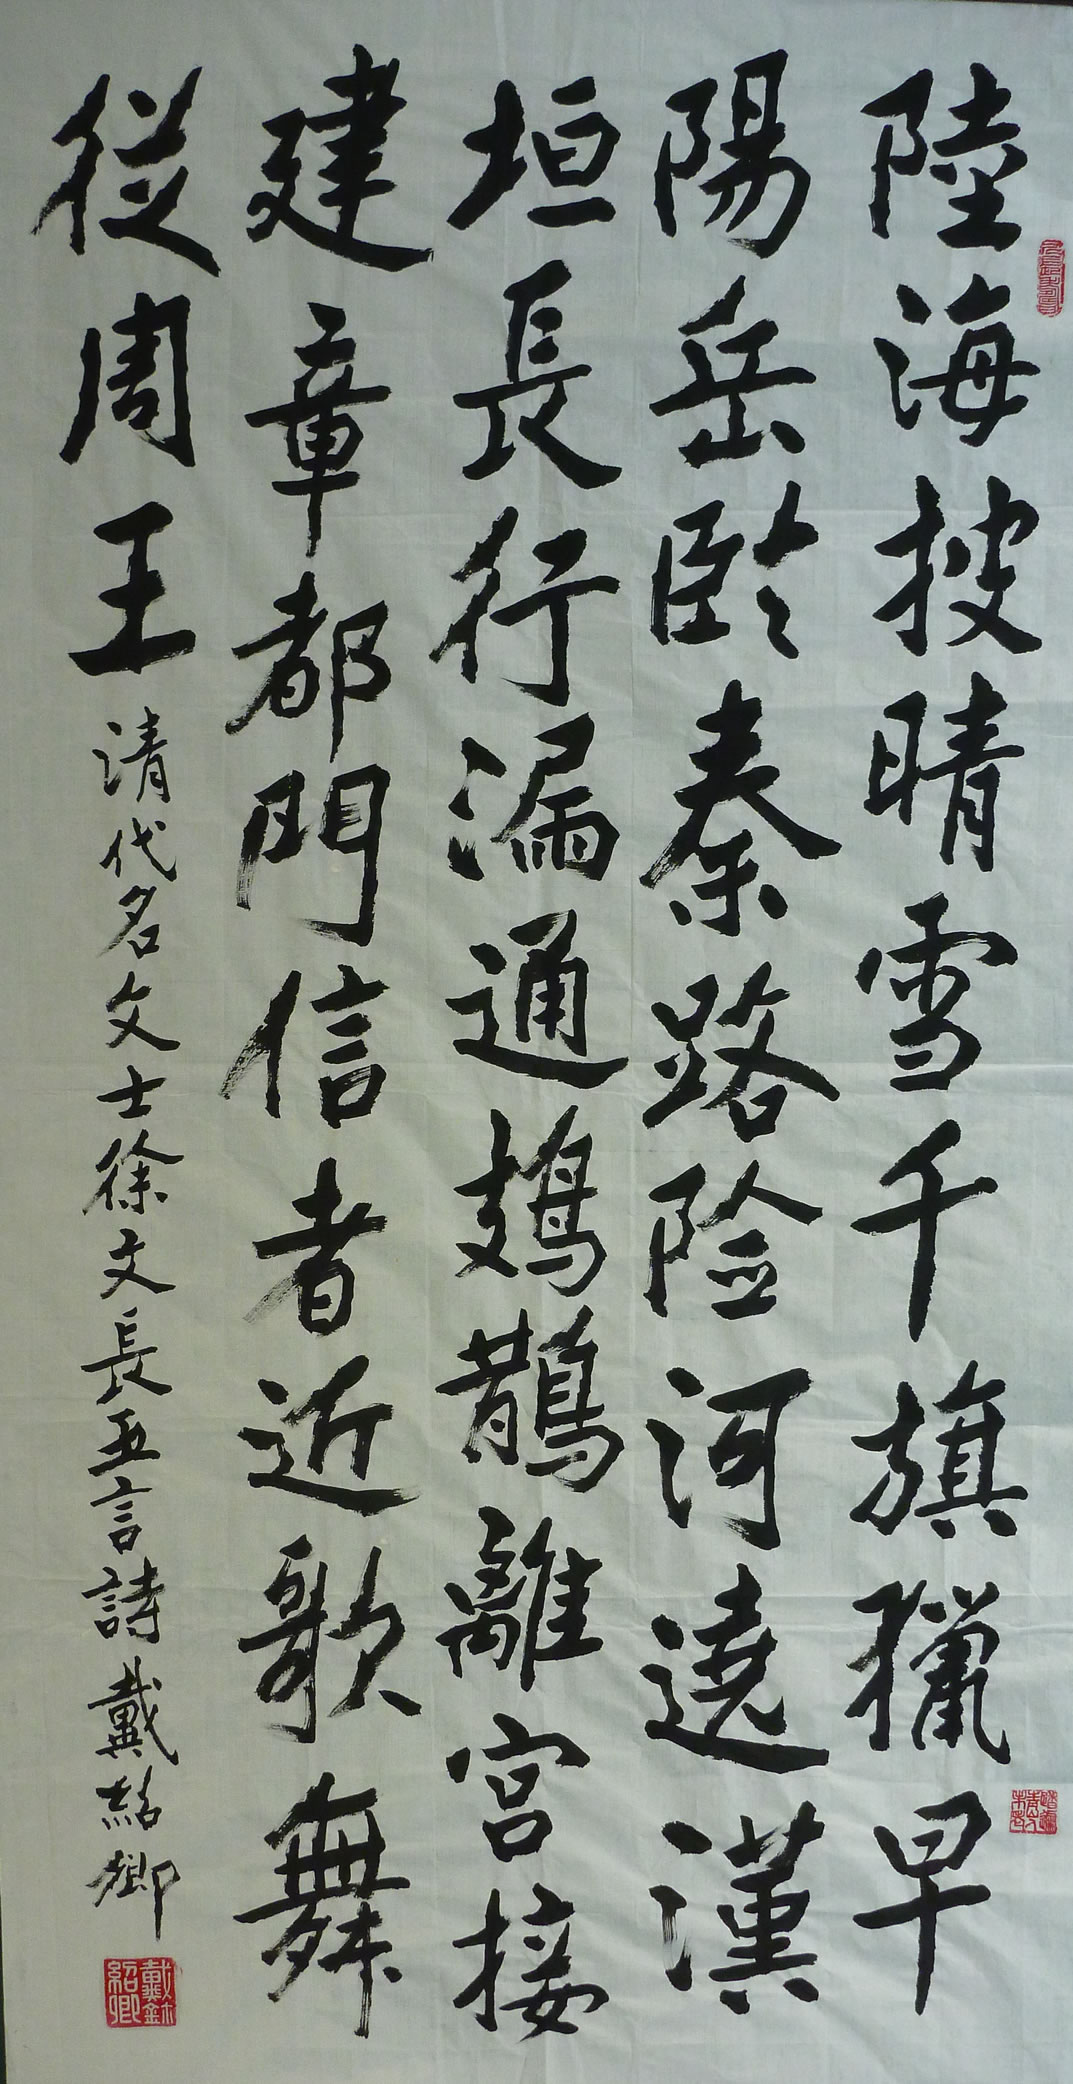 陸海披晴雪千旗獵早
陽岳臨秦路险河遶漢
垣長行漏通鳷鵲離宮接
建章都門信者近歌舞
從周王 清代名文士徐文長五言詩 戴紹卿